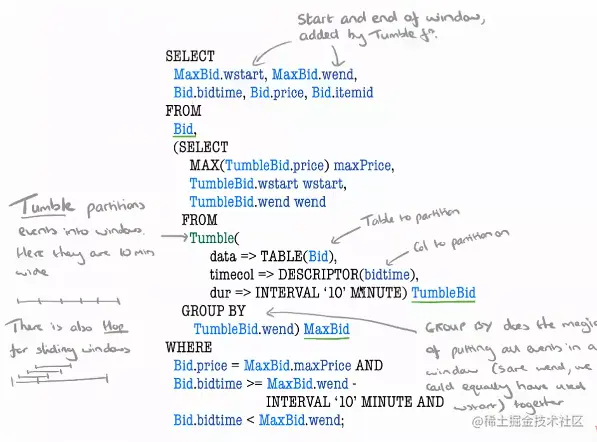 Start and end of window,
added by Tumble fn.
SELECT
MaxBid.wstart, MaxBid.wend,
Bid.bidtime, Bid.price, Bid.itemid
FROM
Bid,
(SELECT
MAX(TumbleBid.price) maxPrice,
TumbleBid.wstart wstart,
TumbleBid.wend wend
FROM
Tumble(
data => TABLE(Bid),
timecol => DESCRIPTOR(bidtime),
dur => INTERVAL '10' MINUTE) TumbleBid
GROUP BY
TumbleBid.wend) MaxBid
WHERE
Bid.price = MaxBid.maxPrice AND
Bid.bidtime >= MaxBid.wend -
INTERVAL '10' MINUTE AND
Bid.bidtime < MaxBid.wend;
Tumble partitions
events into windows.
Here they are 10 min
wide
There is also Hop
for sliding windows
Table to partition
Col to partition on
GROUP BY does the magic
of putting all events in a
window (same wend, we
could equally have used
wstart) together
@稀土掘金技术社区